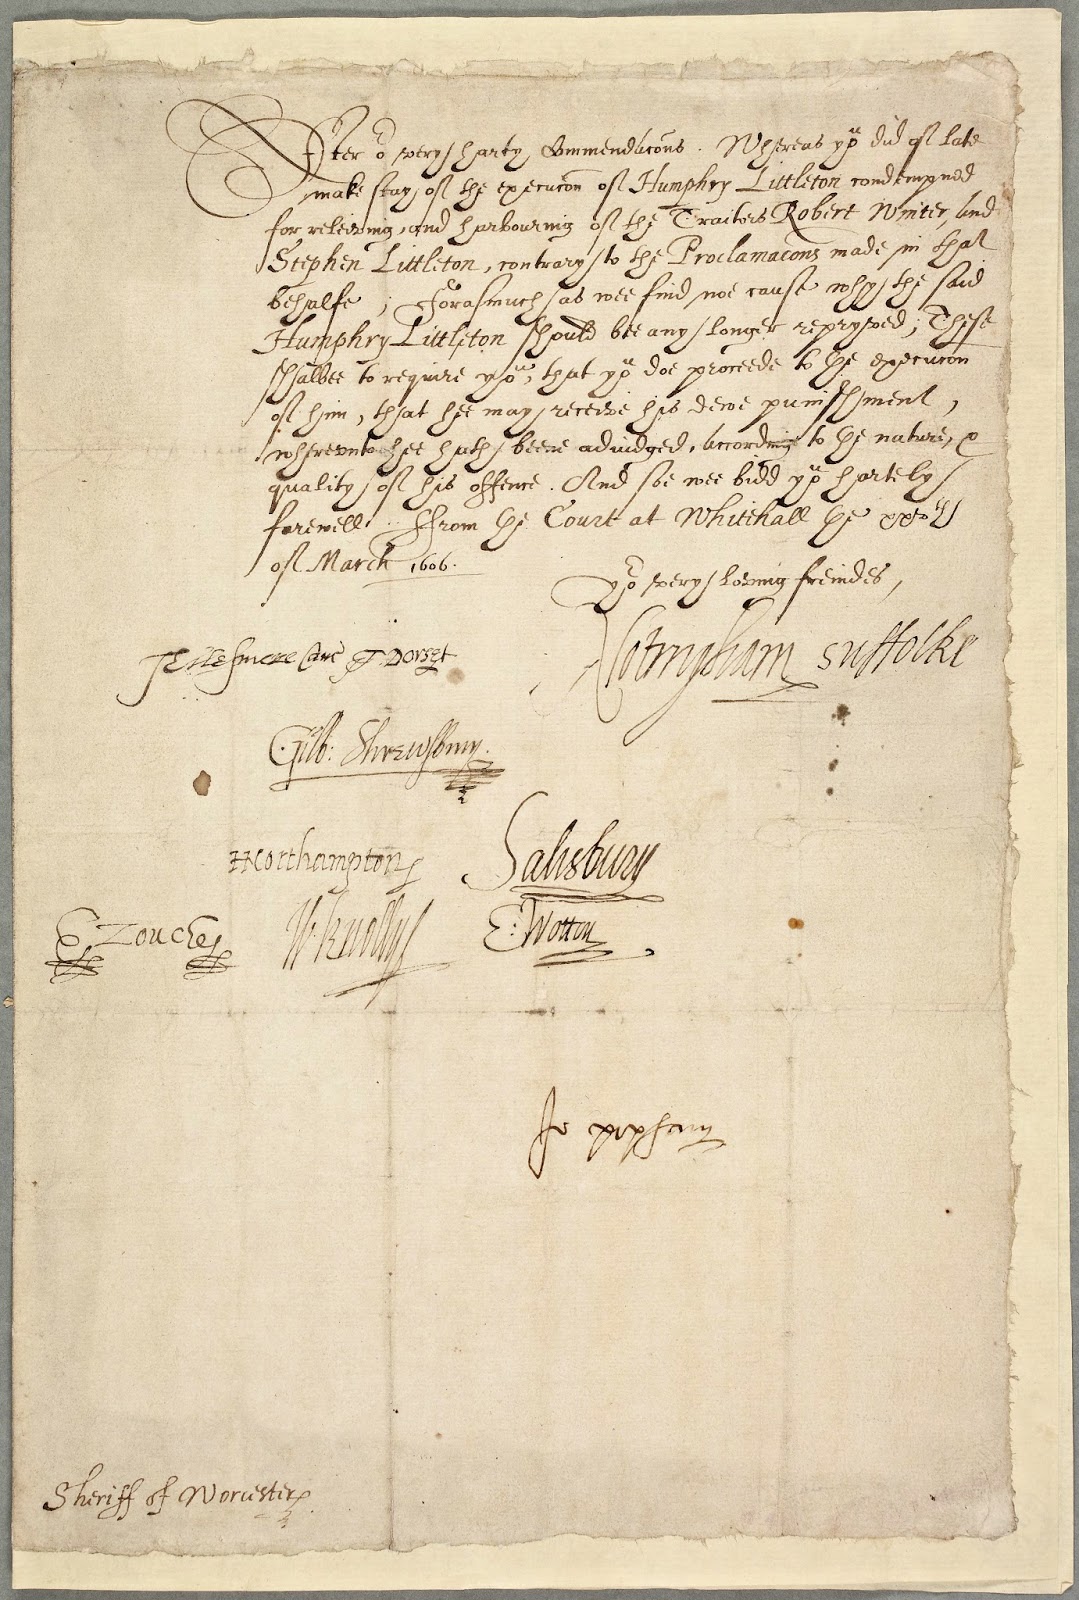 After oʳ very harty Commendacons. Whereas yoᵘ did of late
make stay of the execucon of Humphry Littleton condempned
for releiving, and harbouring of the Traitors Robert Winter, and
Stephen Littleton, contrary to the Proclamacons made in that
behalfe; Forasmuch as wee find noe cause why the said
Humphry Littleton should bee any longer repryved; These
shalbee to require yoᵘ, that yoᵘ doe proceede to the execucon
of him, that hee may receive his dewe punishment,
wherevnto hee hath beene adiudged, according to the nature, &
quality of his offence. And soe wee bidd yoᵘ hartely
farewell. ffrom the Court at Whitehall the
of March 1606.
Yoʳ very loving freindes,
TEllesmere Canc T Dorset Notingham Suffolke
Gilb: Shrewsbury.
HNorthampton Salisbury
E Zouche W Knollys E: Wotton
Jo popham
Sheriff of Worcester